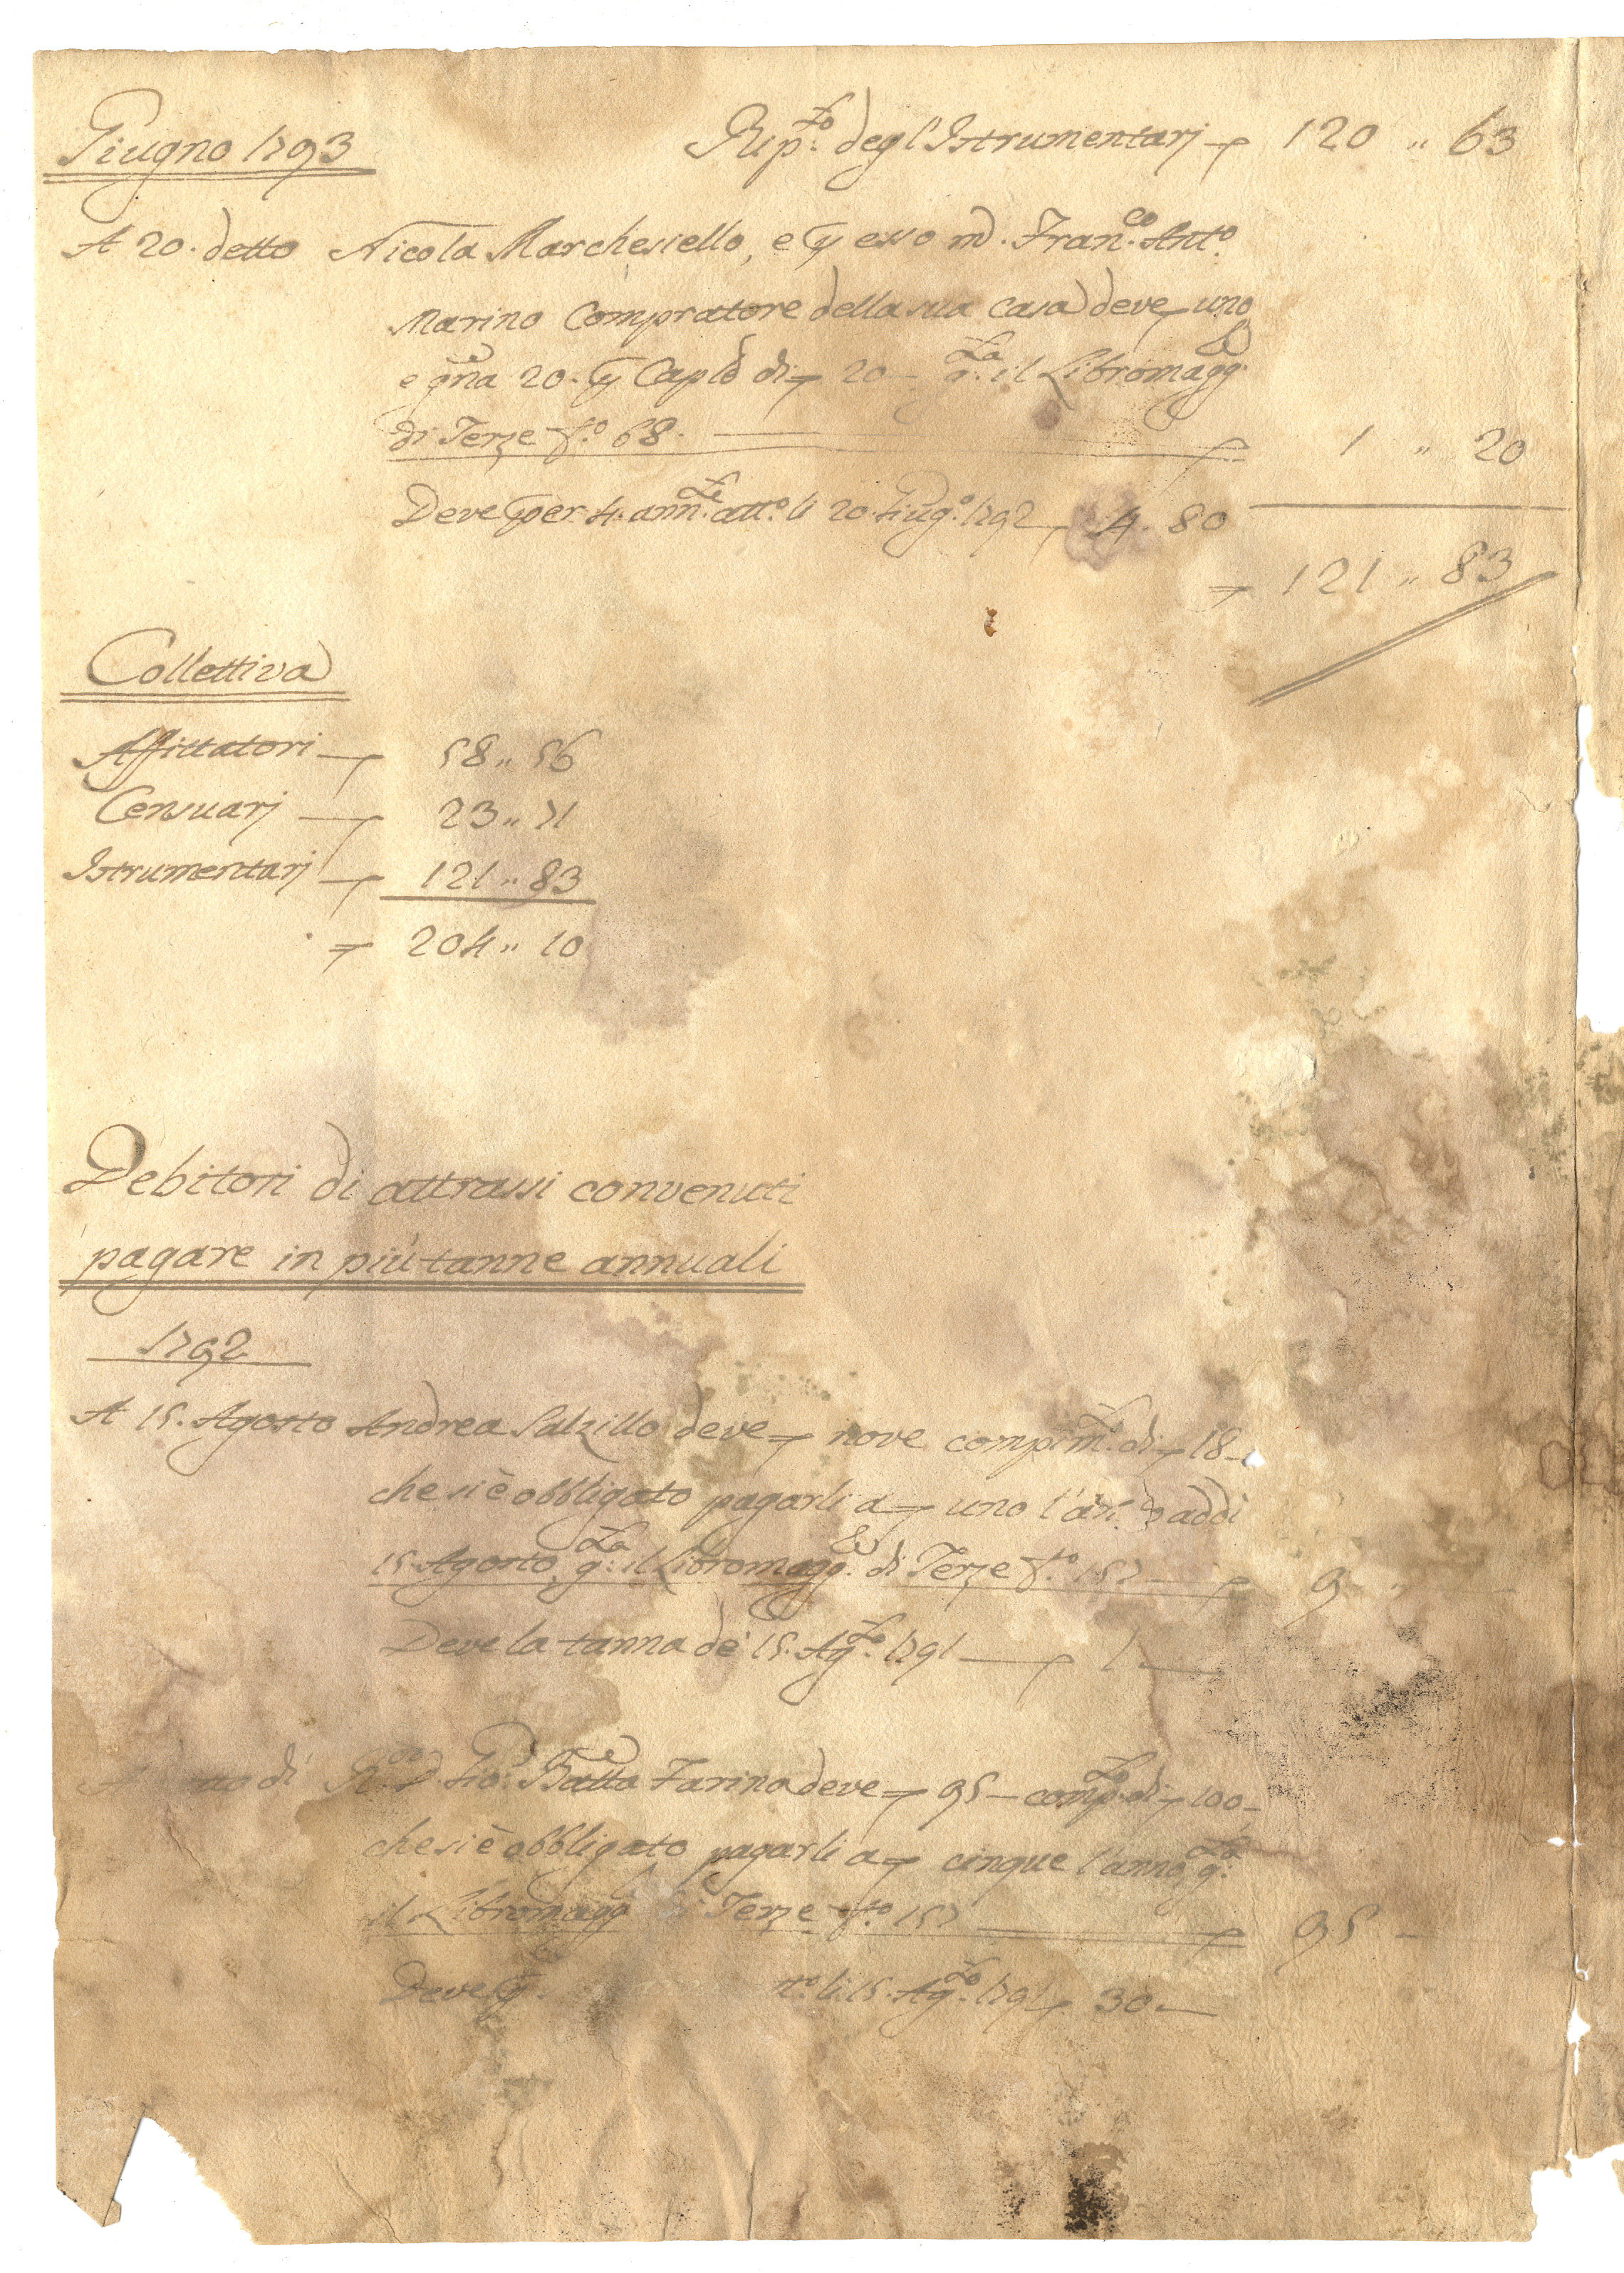 Giugno 1793
Rip.to degl'Istrumentarj 120 " 63
A 20. detto Nicola Marchesiello, e p esso m.d. Fran.co Ant.o
Marino Compratore della sua casa deve uno
e g.na 20. p Cap.le di 20 - g.ta il Libromagg.e
di Terze f.o 68. 1 " 20
Deve per 4. ann.te att.o li 20. Giug.o 1792 4. 80
121 " 83
Collettiva
Affittatori 58 " 56
Censuarj 23 " 71
Istrumentarj 121 " 83
204 " 10
Debitori di attrassi convenuti
pagare in più tanne annuali
1792
A 15. Agosto Andrea Salzillo deve nove compim.to di 18 -
che si è obbligato pagarli a uno l'an. addì
15. Agosto, g.ta il Libromagg.e di Terze f.o 157 9 "
Deve la tanna de' 15. Ag.to 1791 1
dì R.do D. Gio: Batta Farina deve 95 - comp.to di 100 -
che si è obbligato pagarli a cinque l'anno, g.ta
il Libromagg Terze f.o 157 95 -
Deve p li 15. Ag.to 1791 30 -